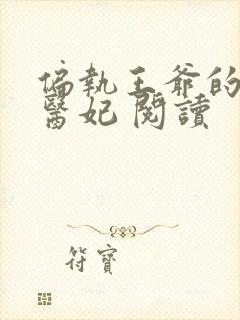 偏執王爺的
醫妃 閱讀
符寶